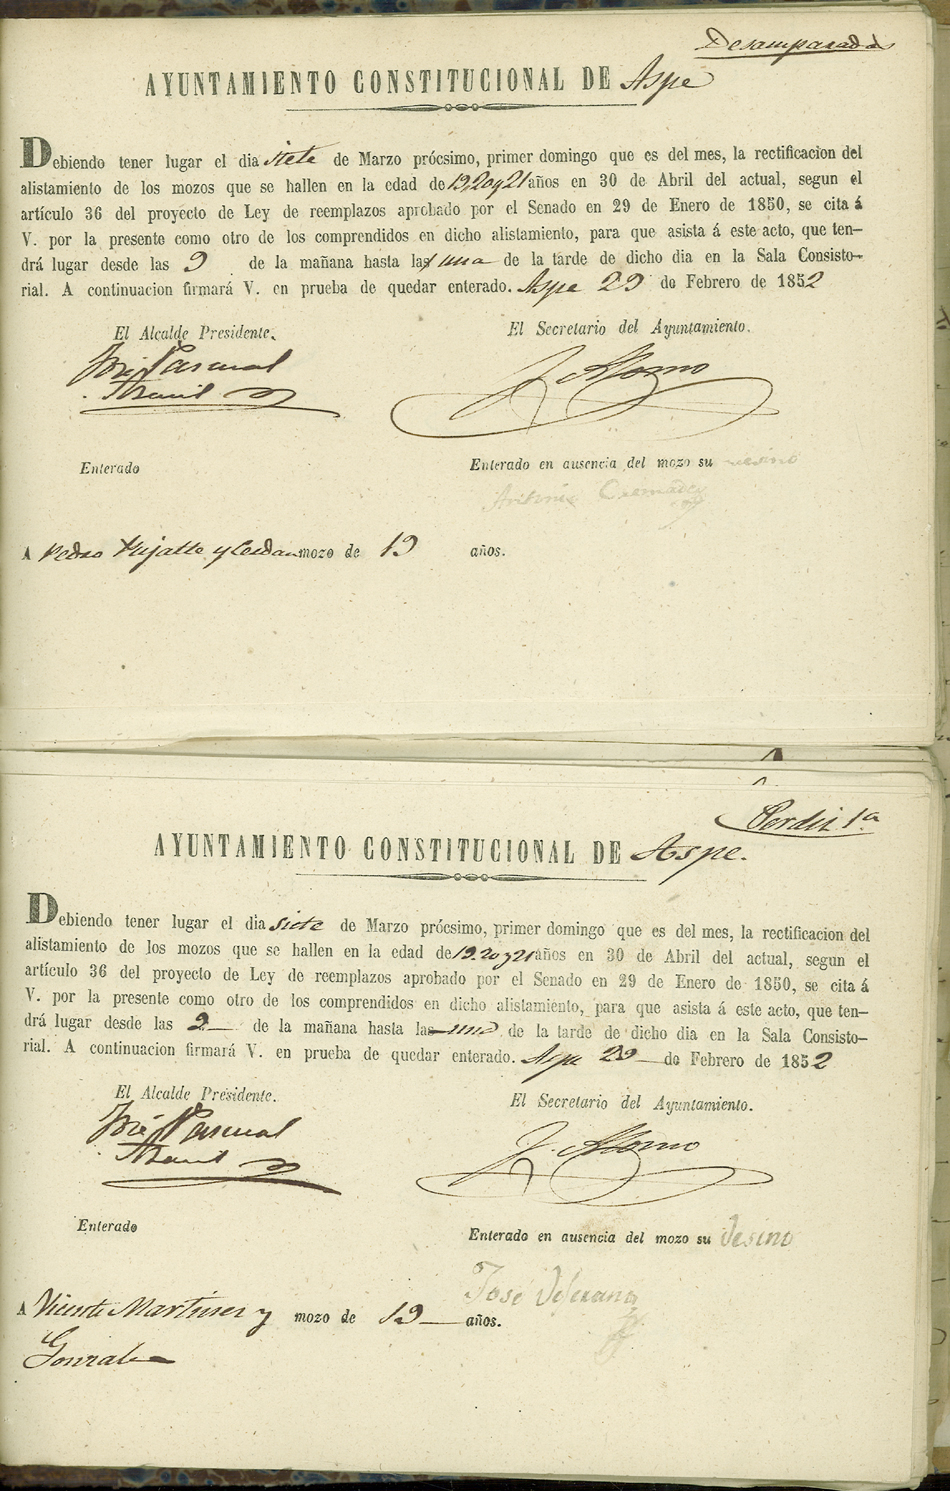 Desamparados
AYUNTAMIENTO CONSTITUCIONAL DE Aspe
Debiendo tener lugar el dia siete de Marzo prócsimo, primer domingo que es del mes, la rectificacion del
alistamiento de los mozos que se hallen en la edad de 19, 20 y 21 años en 30 de Abril del actual, segun el
artículo 36 del proyecto de Ley de reemplazos aprobado por el Senado en 29 de Enero de 1850, se cita á
V. por la presente como otro de los comprendidos en dicho alistamiento, para que asista á este acto, que ten-
drá lugar desde las 9 de la mañana hasta la una de la tarde de dicho dia en la Sala Consisto-
rial. A continuacion firmará V. en prueba de quedar enterado. Aspe 29 de Febrero de 1852
El Alcalde Presidente. El Secretario del Ayuntamiento.
José Pascual J. Alorno
Enterado Enterado en ausencia del mozo su vesino
Antonio
A Pedro y Cerdan mozo de 19 años.
1ª
AYUNTAMIENTO CONSTITUCIONAL DE Aspe.
Debiendo tener lugar el dia siete de Marzo prócsimo, primer domingo que es del mes, la rectificacion del
alistamiento de los mozos que se hallen en la edad de 19. 20 y 21 años en 30 de Abril del actual, segun el
artículo 36 del proyecto de Ley de reemplazos aprobado por el Senado en 29 de Enero de 1850, se cita á
V. por la presente como otro de los comprendidos en dicho alistamiento, para que asista á este acto, que ten-
drá lugar desde las 9 de la mañana hasta la una de la tarde de dicho dia en la Sala Consisto-
rial. A continuacion firmará V. en prueba de quedar enterado. Aspe 29 de Febrero de 1852
El Alcalde Presidente. El Secretario del Ayuntamiento.
José Pascual J. Alorno
Enterado Enterado en ausencia del mozo su Vesino
José
A Vicente Martines y mozo de 19 años.
Gonzales